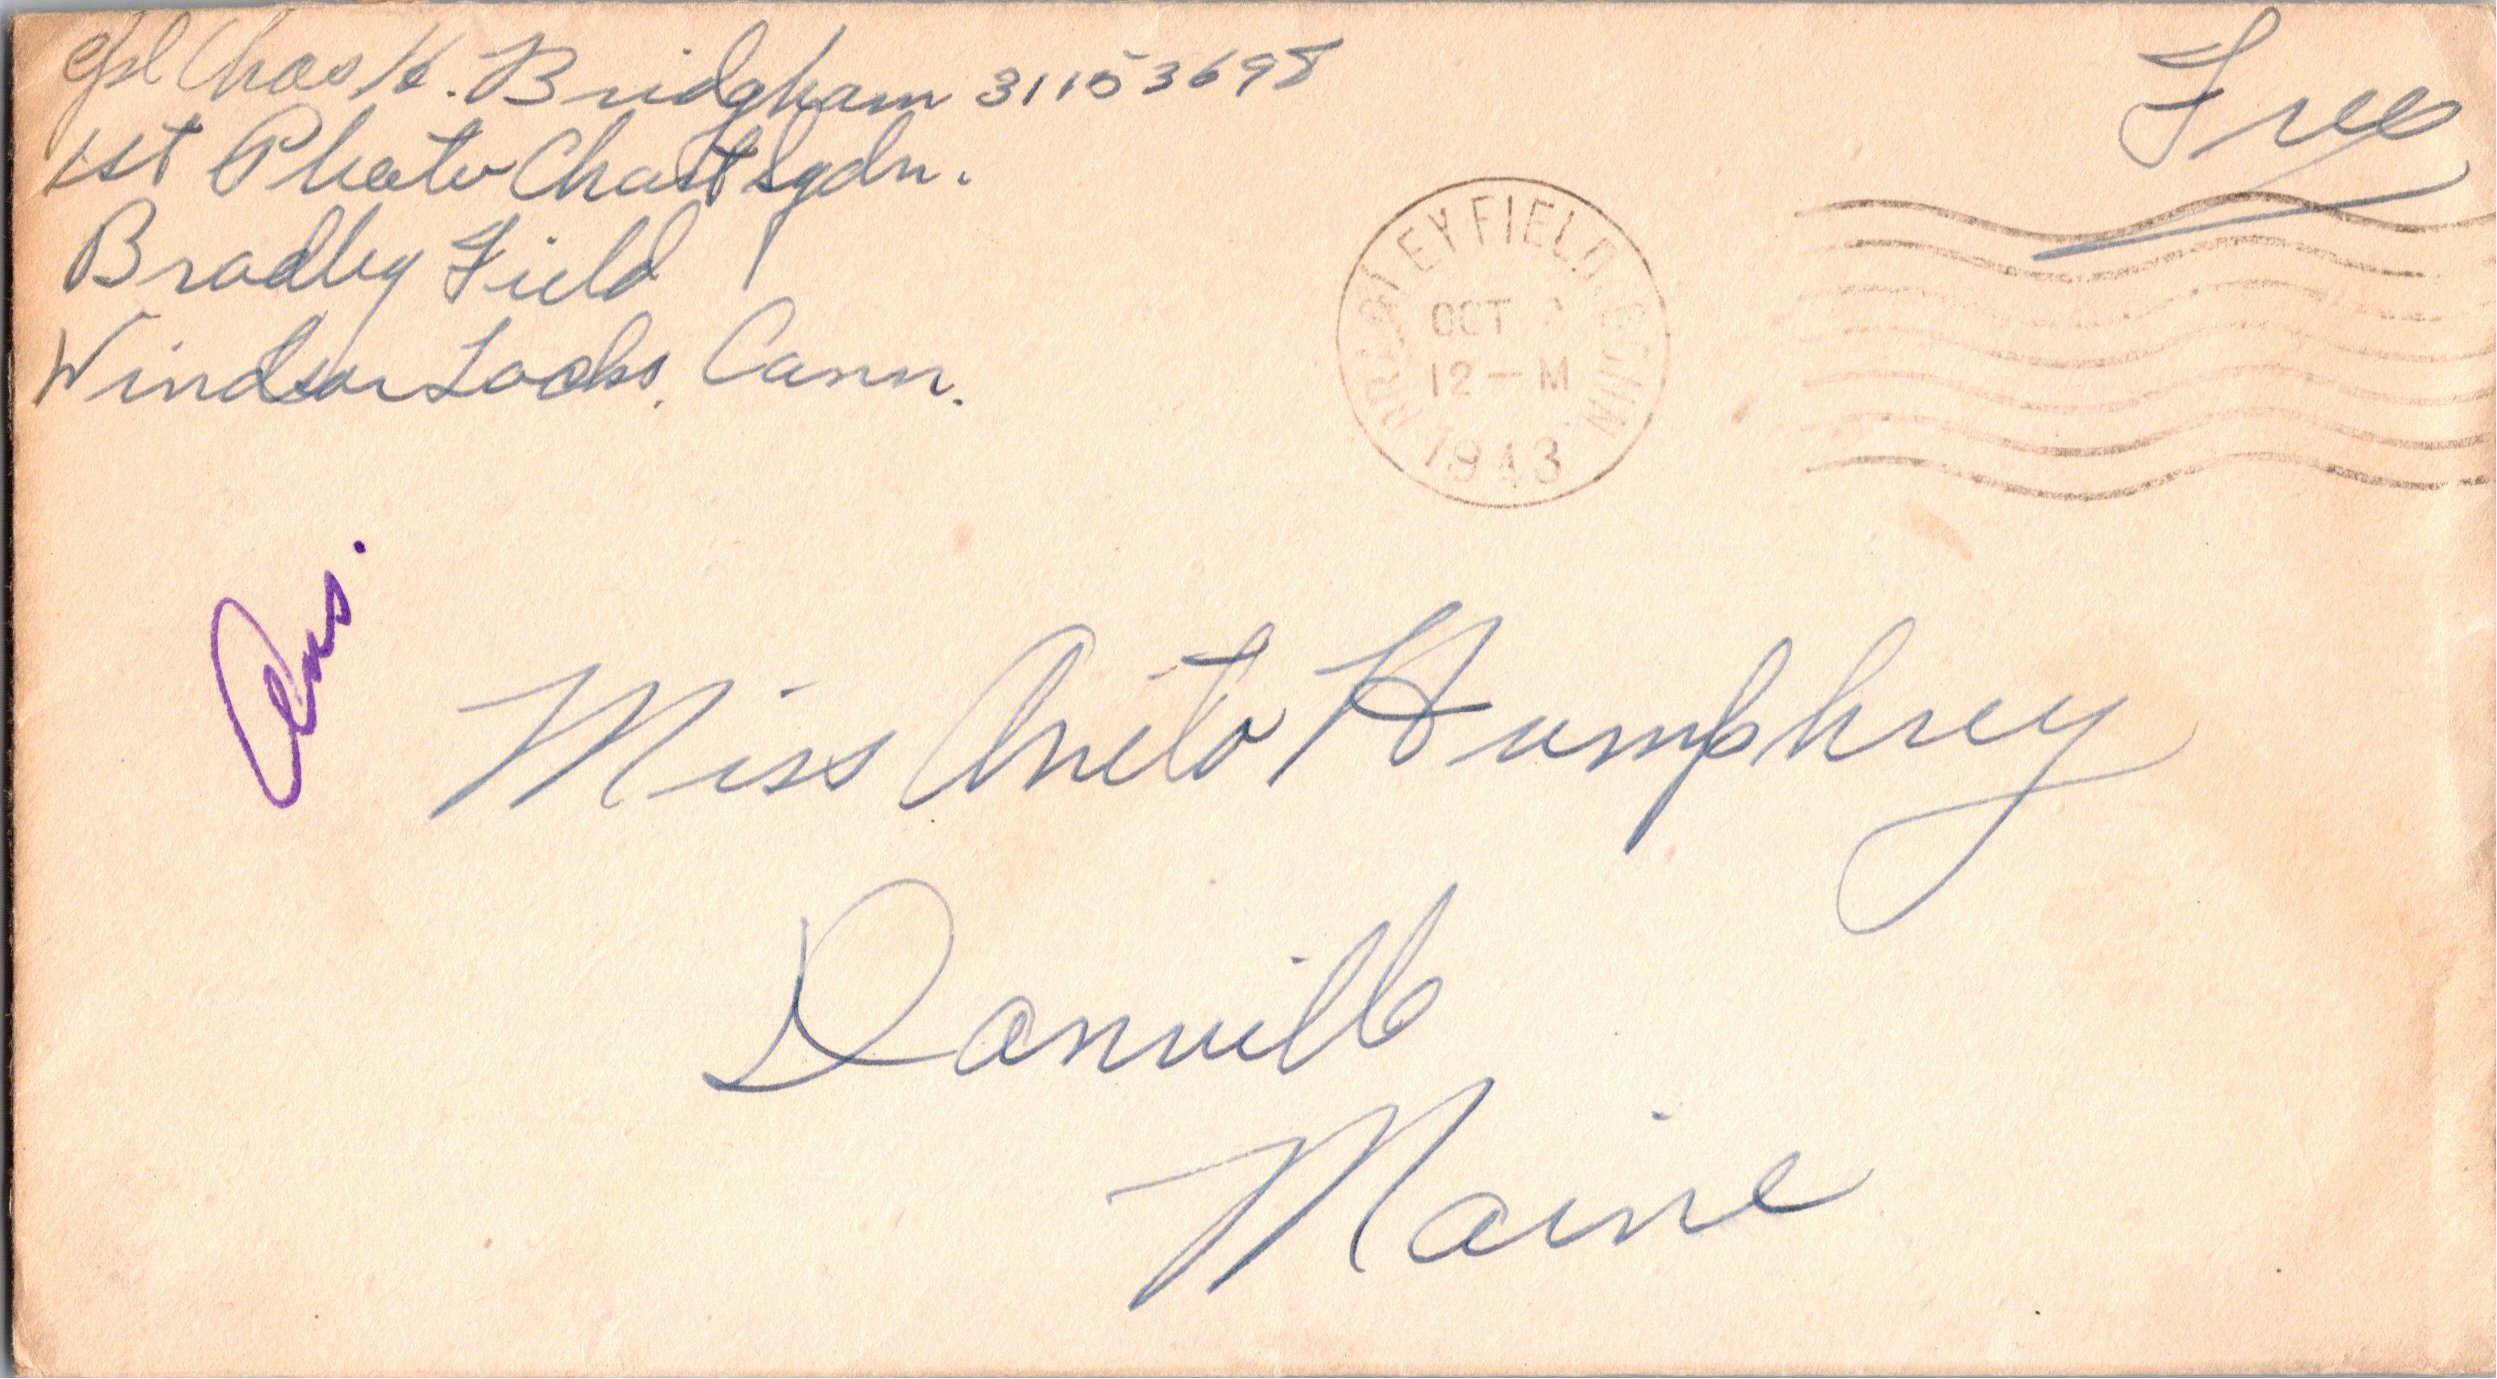 Cpl Chas H. Bridgham 31153698
Free
1st Photo Chart Sqdn.
Bradley Field
Windsor Locks, Conn.
BRADLEY FIELD, CONN.
OCT
12-M
1943
Ans.
Miss Anita Humphrey
Danville
Maine